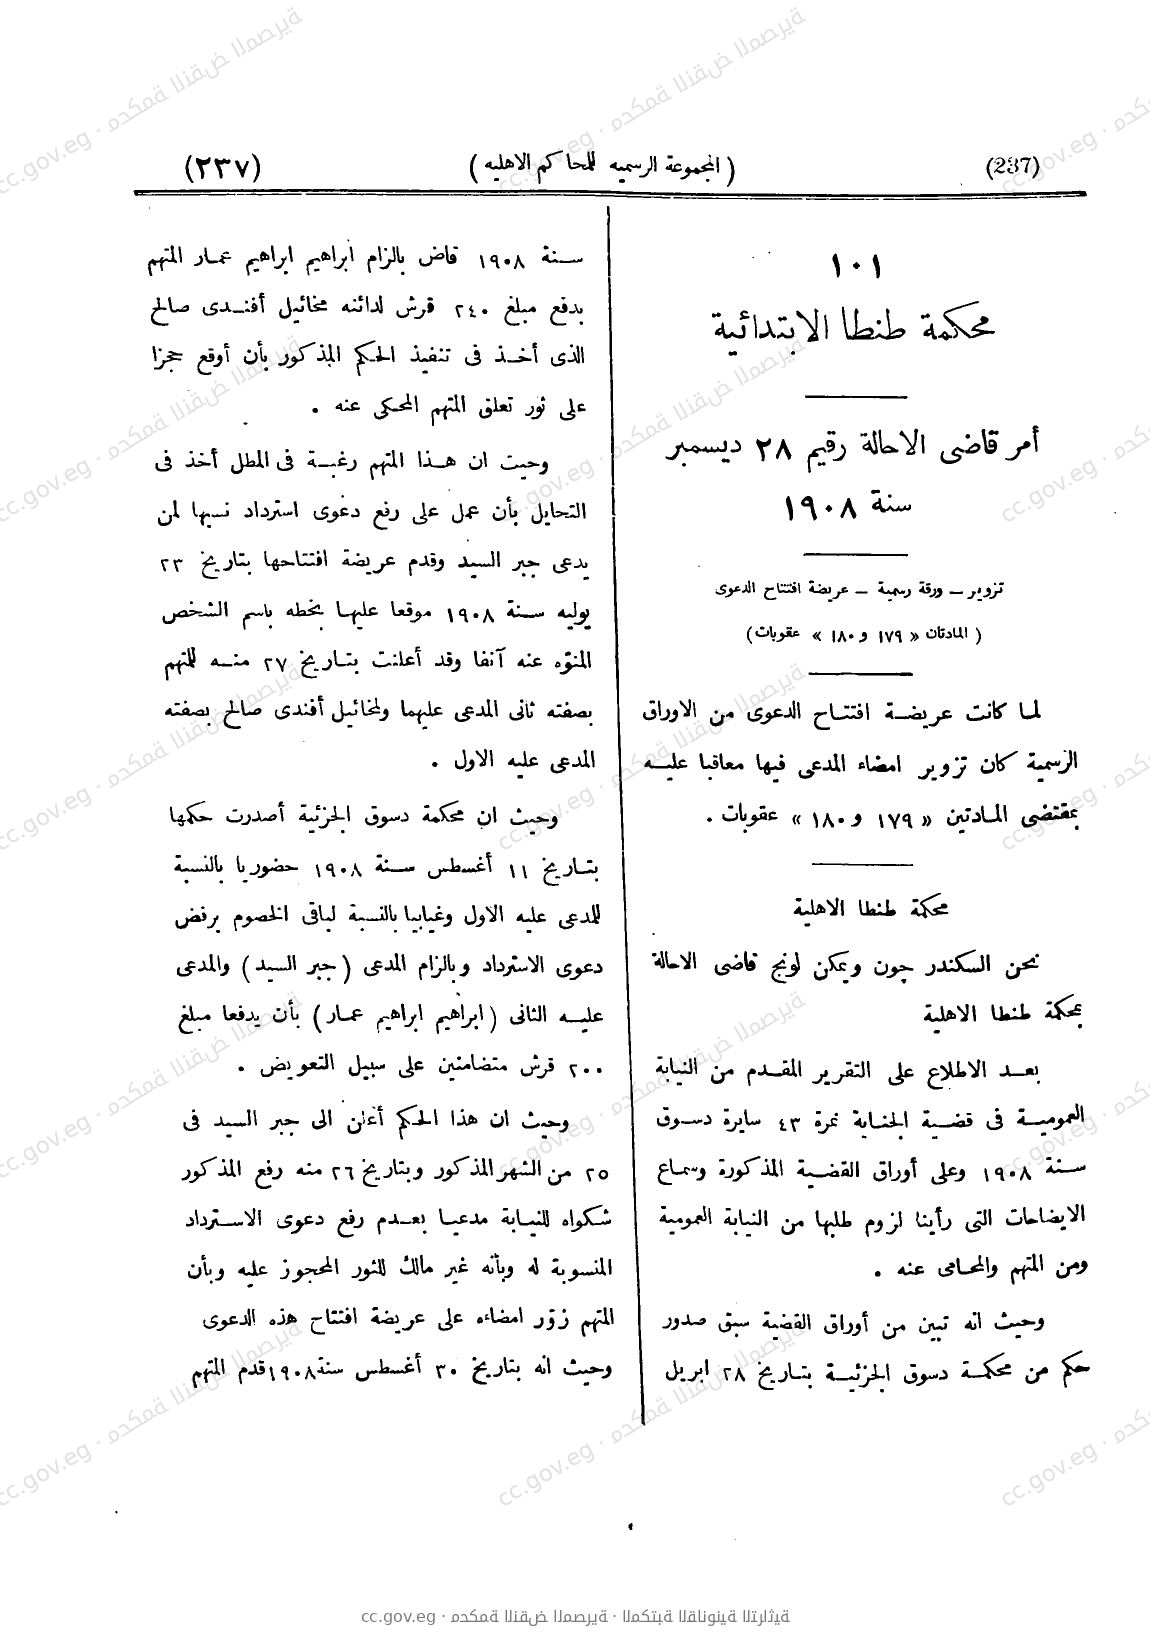 (237)
( المجموعة الرسميه للمحاكم الاهليه )
(٢٣٧)
١٠١
محكمة طنطا الابتدائية
أمر قاضى الاحالة رقيم ٢٨ ديسمبر
سنة ١٩٠٨
تزوير ــ ورقة رسمية ــ عريضة افتتاح الدعوى
( المادتان « ١٧٩ و ١٨٠ » عقوبات )
لما كانت عريضة افتتاح الدعوى من الاوراق
الرسمية كان تزوير امضاء المدعى فيها معاقبا عليه
بمقتضى المادتين « ١٧٩ و ١٨٠ » عقوبات .
محكمة طنطا الاهلية
نحن السكندر چون ويمكن لونج قاضى الاحالة
بمحكمة طنطا الاهلية
بعد الاطلاع على التقرير المقدم من النيابة
العمومية فى قضية الجناية نمرة ٤٣ سايرة دسوق
سنة ١٩٠٨ وعلى أوراق القضية المذكورة وسماع
الايضاحات التى رأينا لزوم طلبها من النيابة العمومية
ومن المتهم والمحامى عنه .
وحيث انه تبين من أوراق القضية سبق صدور
حكم من محكمة دسوق الجزئية بتاريخ ٢٨ ابريل
سنة ١٩٠٨ قاض بالزام ابراهيم ابراهيم عمار المتهم
بدفع مبلغ ٢٤٠ قرش لدائنه مخائيل أفندى صالح
الذى أخذ فى تنفيذ الحكم المذكور بأن أوقع حجزا
على ثور تعلق المتهم المحكى عنه .
وحيث ان هذا المتهم رغبة فى المطل أخذ فى
التحايل بأن عمل على رفع دعوى استرداد نسبها لمن
يدعى جبر السيد وقدم عريضة افتتاحها بتاريخ ٢٣
يوليه سنة ١٩٠٨ موقعا عليها بخطه باسم الشخص
المنوّه عنه آنفا وقد أعلنت بتاريخ ٢٧ منه للمتهم
بصفته ثانى المدعى عليهما ولمخائيل أفندى صالح بصفته
المدعى عليه الاول .
وحيث ان محكمة دسوق الجزئية أصدرت حكمها
بتاريخ ١١ أغسطس سنة ١٩٠٨ حضوريا بالنسبة
للمدعى عليه الاول وغيابيا بالنسبة لباقى الخصوم برفض
دعوى الاسترداد وبالزام المدعى ( جبر السيد ) والمدعى
عليه الثانى ( ابراهيم ابراهيم عمار ) بأن يدفعا مبلغ
٢٠٠ قرش متضامنين على سبيل التعويض .
وحيث ان هذا الحكم أعلن الى جبر السيد فى
٢٥ من الشهر المذكور وبتاريخ ٢٦ منه رفع المذكور
شكواه للنيابة مدعيا بعدم رفع دعوى الاسترداد
المنسوبة له وبأنه غير مالك للثور المحجوز عليه وبأن
المتهم زوّر امضاءه على عريضة افتتاح هذه الدعوى
وحيث انه بتاريخ ٣٠ أغسطس سنة ١٩٠٨ قدم المتهم
cc.gov.eg · محكمة النقض المصرية · المكتبة القانونية التراثية